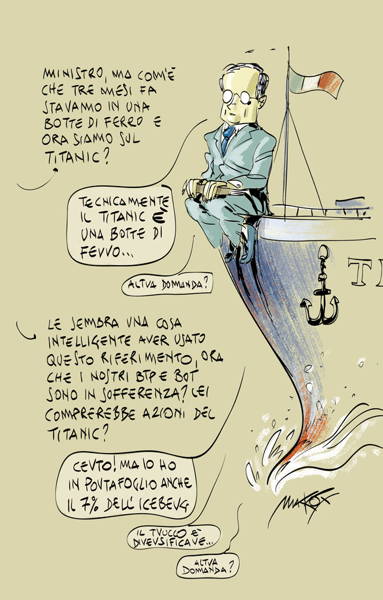 MINISTRO, MA COM'È
CHE TRE MESI FA
STAVAMO IN UNA
BOTTE DI FERRO E
ORA SIAMO SUL
TITANIC?
TECNICAMENTE
IL TITANIC È
UNA BOTTE DI
FEVVO...
ALTVA DOMANDA?
LE SEMBRA UNA COSA
INTELLIGENTE AVER USATO
QUESTO RIFERIMENTO, ORA
CHE I NOSTRI BTP E BOT
SONO IN SOFFERENZA? LEI
COMPREREBBE AZIONI DEL
TITANIC?
CEVTO! MA IO HO
IN POVTAFOGLIO ANCHE
IL 7% DELL'ICEBEVG
IL TVUCCO È
DIVEVSIFICAVE...
ALTVA
DOMANDA?
TI
MAKOX